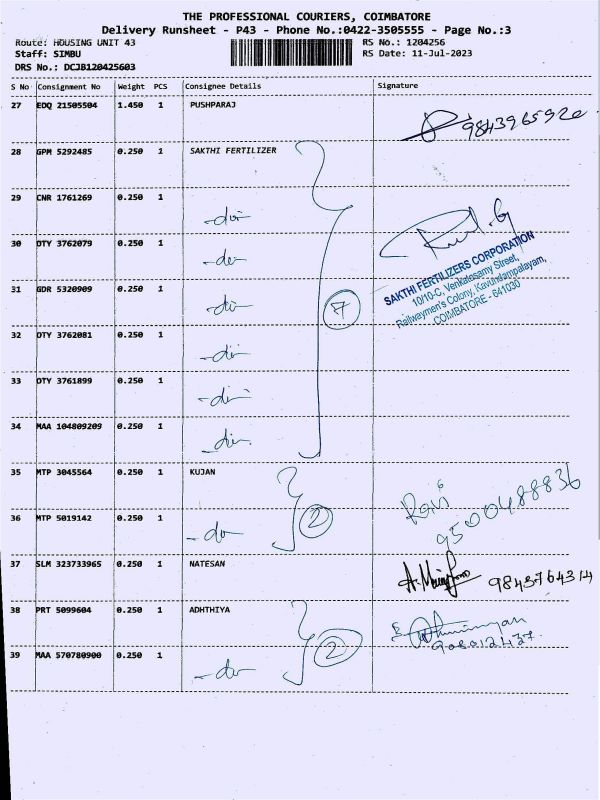 THE PROFESSIONAL COURIERS, COIMBATORE
Delivery Runsheet - P43 - Phone No.:0422-3505555 - Page No.:3
Route: HOUSING UNIT 43 RS No.: 1204256
Staff: SIMBU RS Date: 11-Jul-2023
DRS No.: DCJB120425603
S No Consignment No Weight PCS Consignee Details Signature
27 EDQ 21505504 1.450 1 PUSHPARAJ
9843965920
28 GPM 5292485 0.250 1 SAKTHI FERTILIZER
29 CNR 1761269 0.250 1 -do-
30 OTY 3762079 0.250 1 -do-
SAKTHI FERTILIZERS CORPORATION
10/10-C, Venkatosamy Street,
Railwaymen's Colony, Kavundampalayam,
COIMBATORE - 641030
31 GDR 5320909 0.250 1 -do- 7
32 OTY 3762081 0.250 1 -do-
33 OTY 3761899 0.250 1 -do-
34 MAA 104809209 0.250 1 -do-
35 MTP 3045564 0.250 1 KUJAN
Ravi
9500488836
36 MTP 5019142 0.250 1 -do- 2
37 SLM 323733965 0.250 1 NATESAN
9843764314
38 PRT 5099604 0.250 1 ADHTHIYA
39 MAA 570780900 0.250 1 -do- 2